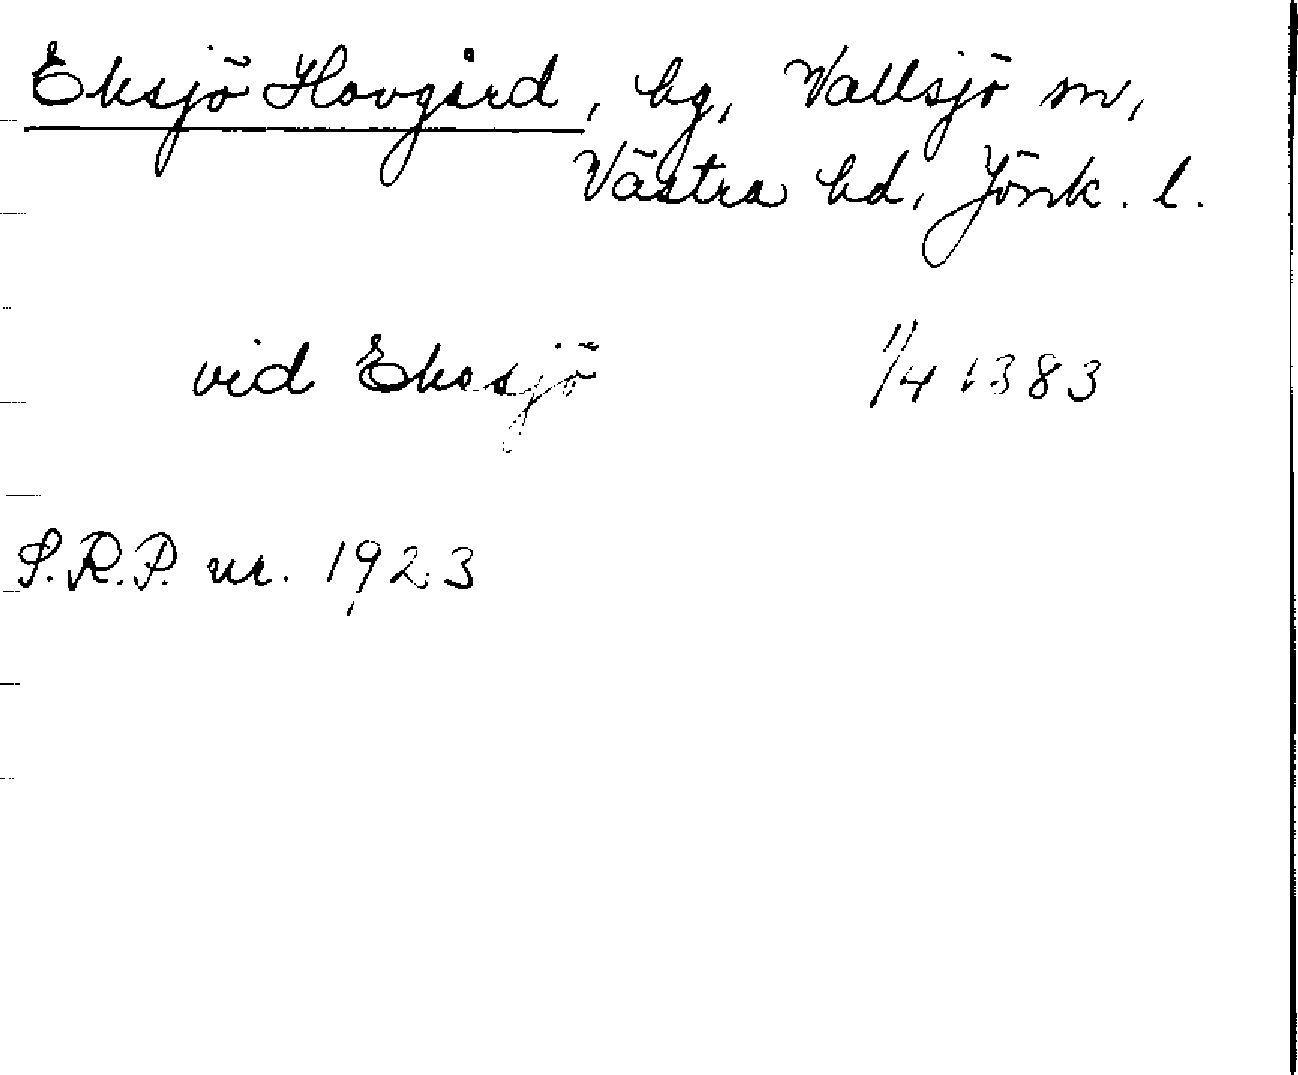 Eksjö Hovgård, hg, Vallsjö sn,
Västra hd, Jönk. l.
vid Eksjö 11/4 1383
S.R.P. nr. 1923